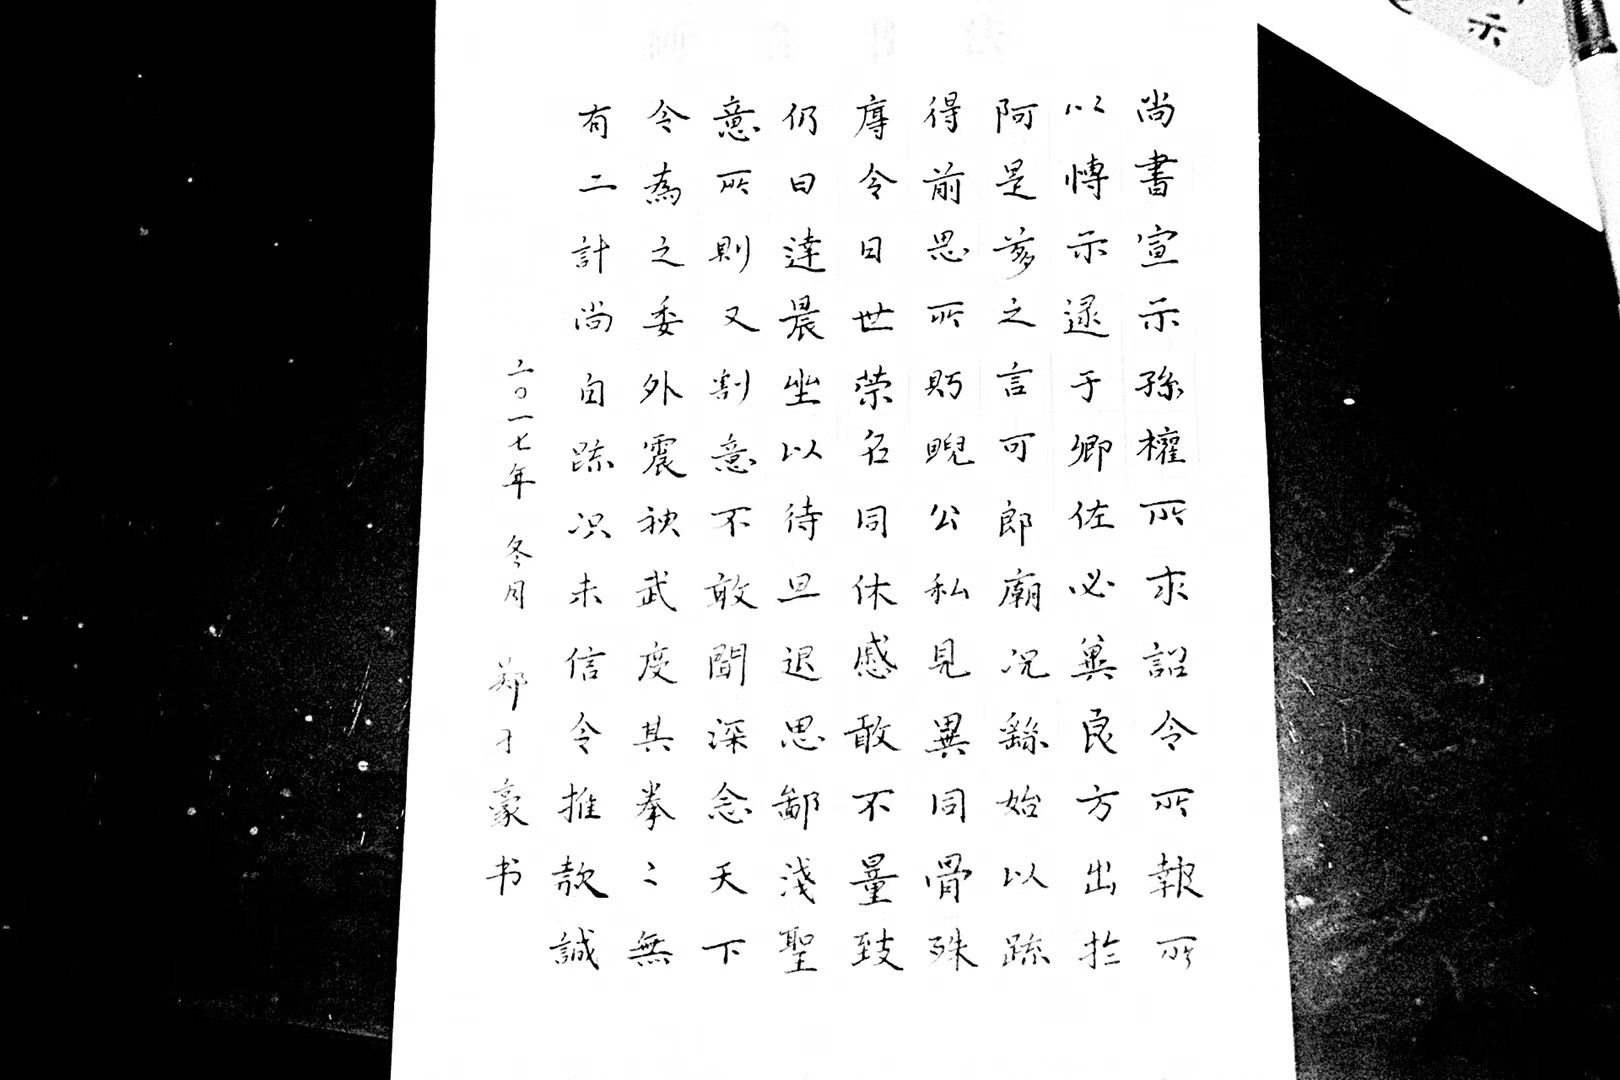 尚書宣示孫權所求詔令所報所
以博示逮于卿佐必冀良方出於
阿是芻之言可郎廟況繇始以疏
得前恩所眄睨公私見異同骨殊
厚令日世榮名同休慼敢不量致
仍日達晨坐以待旦退思鄙淺聖
意所則又割意不敢聞深念天下
今為之委外震袂武度其拳〻無
有二計尚自疏況未信令推款誠
二〇一七年 冬月 郑才豪书
示